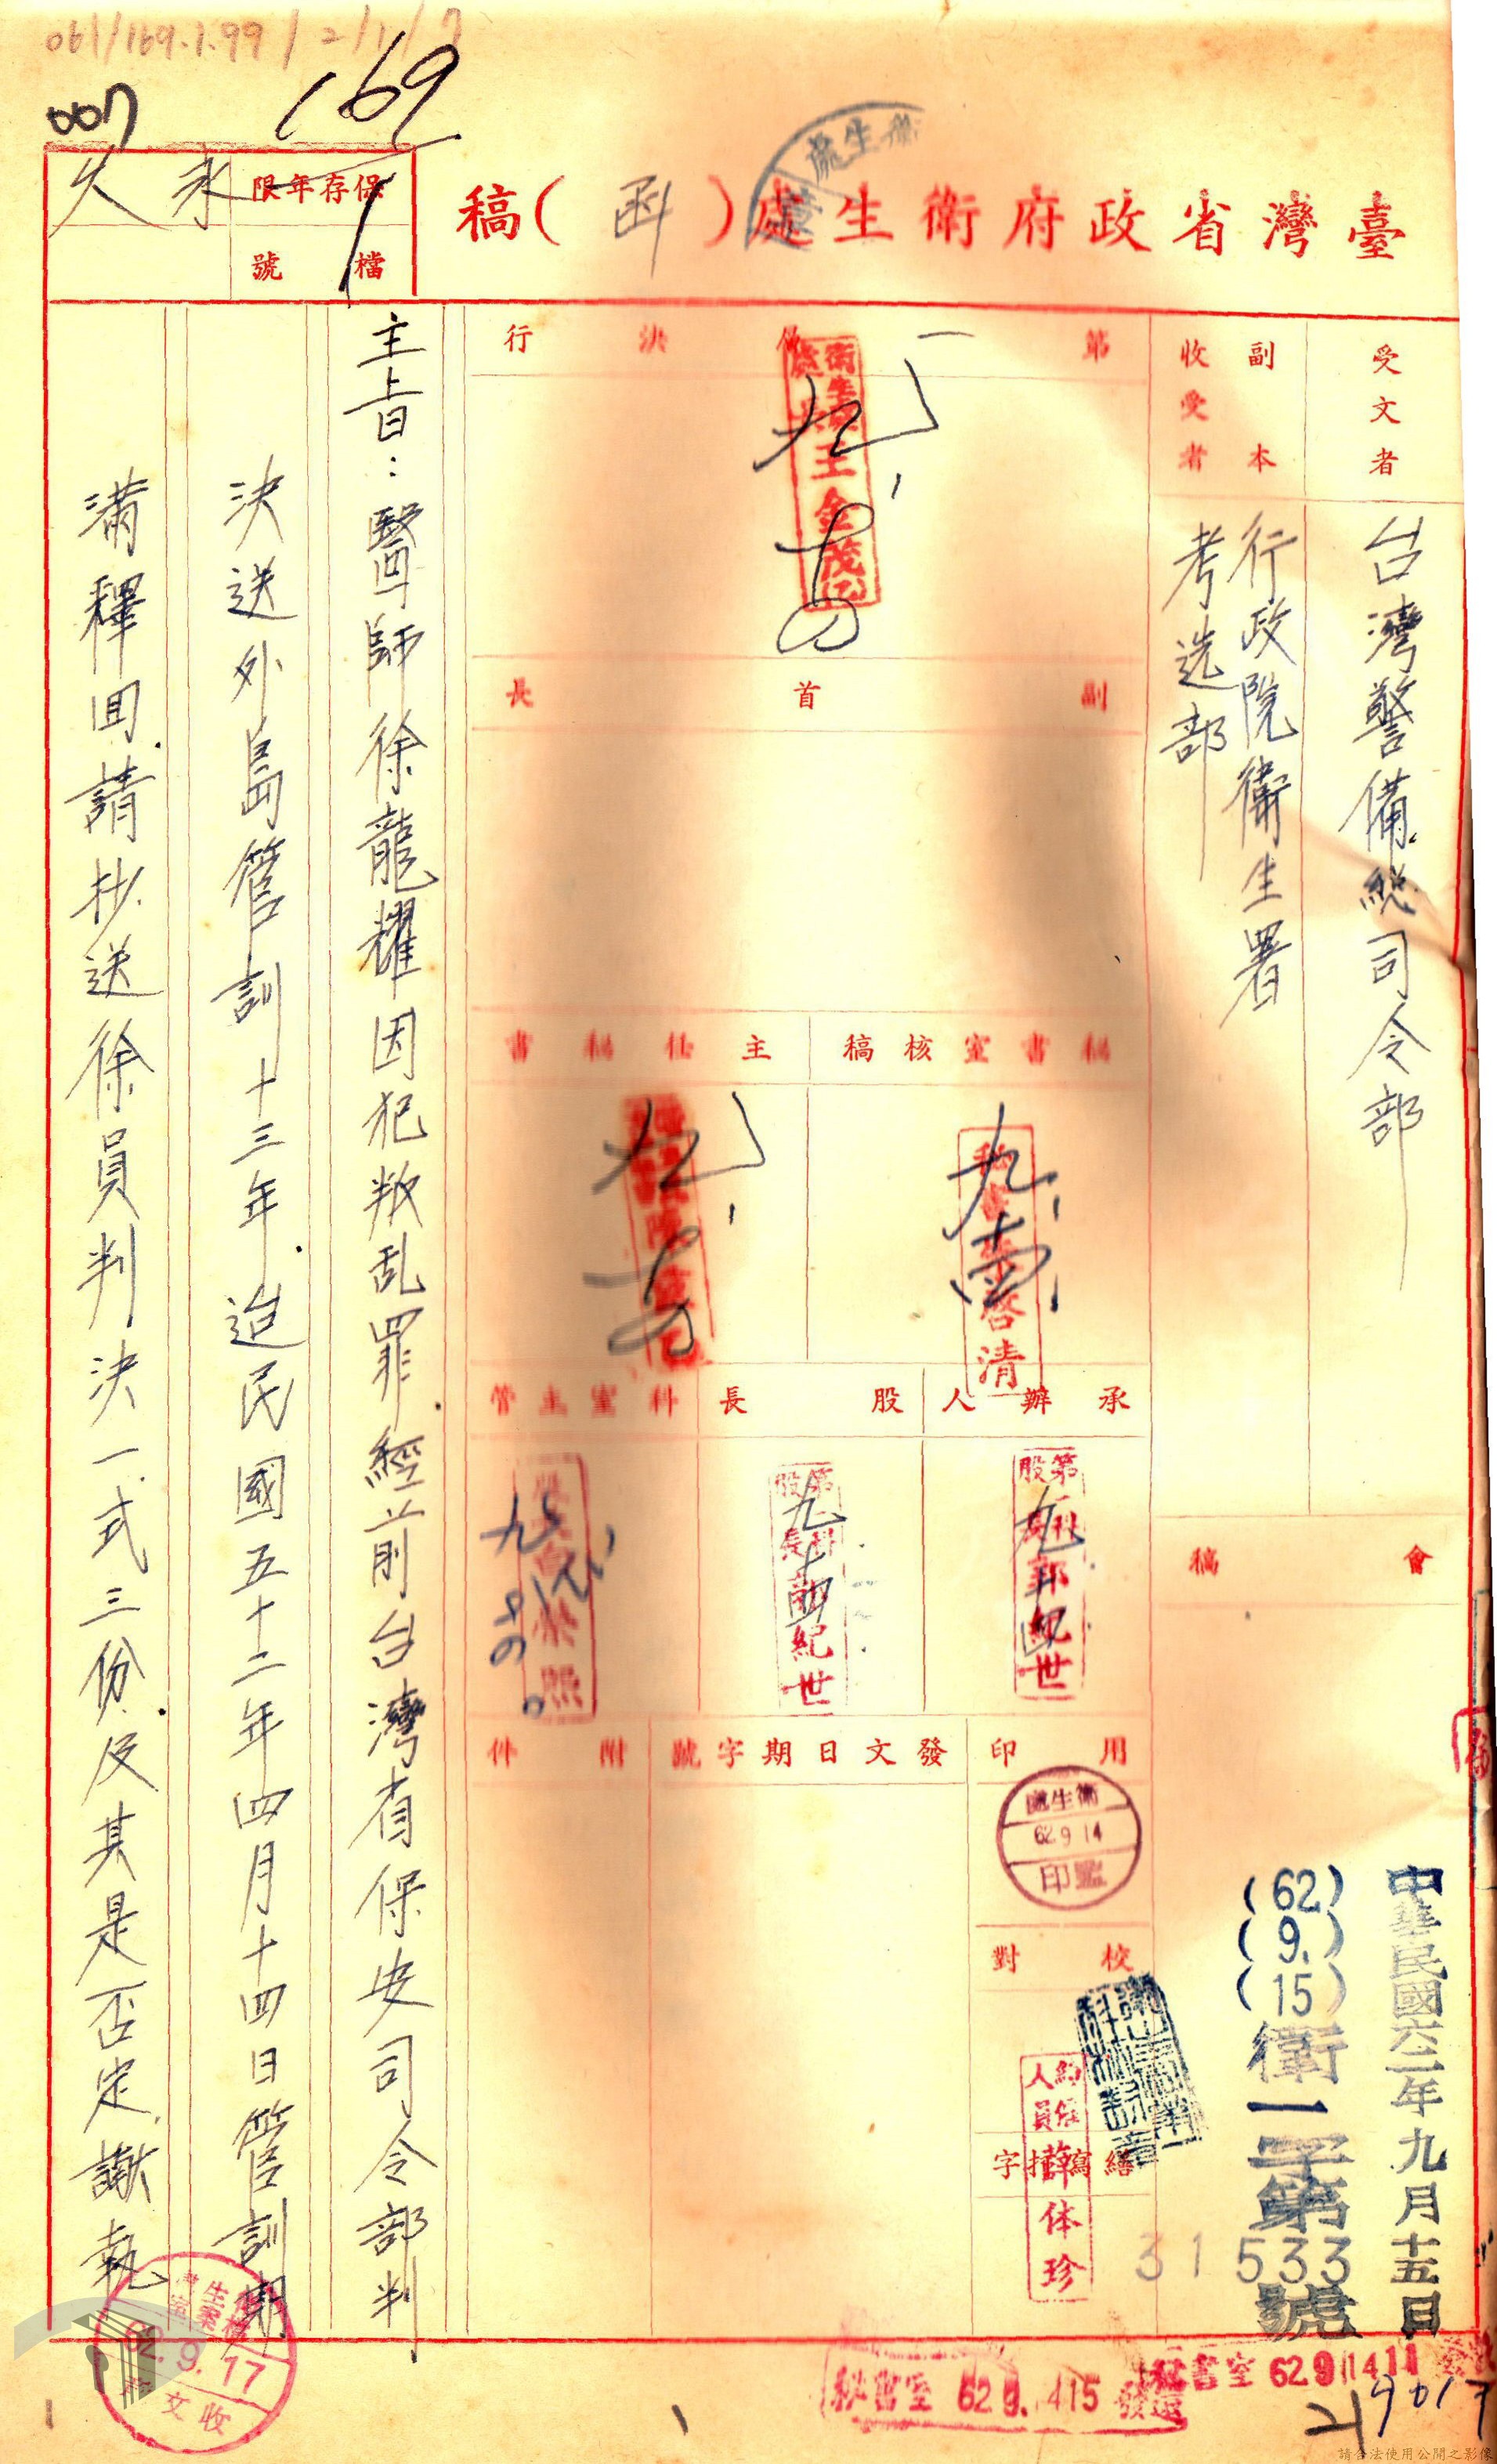 061/169.1.99/2/1/7
007
169
1
臺灣省政府衛生處(函)稿
保存年限
永久
檔號
受文者
台灣警備總司令部
副本
收受者
行政院衛生署
考选部
第一條決行
王金茂
副首長
秘書室核稿
主任秘書
清
承辦人
股長
科室主管
第一科
股長
郭紀世
第一科
股長
郭紀世
會稿
用印
衛生處
62.9.14
監印
發文日期字號
附件
校對
繕寫打字
約僱
人員
薛体珍
中華民國六二年九月十五日
(62)
(9.)
(15)
衛一字第31533號
主旨：醫師徐龍耀因犯叛乱罪經前台灣省保安司令部判
決送外島管訓十三年迨民國五十二年四月十四日管訓期
滿釋回請抄送徐員判決一式三份及其是否定讞執
62.9.17
收文
秘書室 62.9.14
秘書室 62.9.15
請合法使用公開之影像